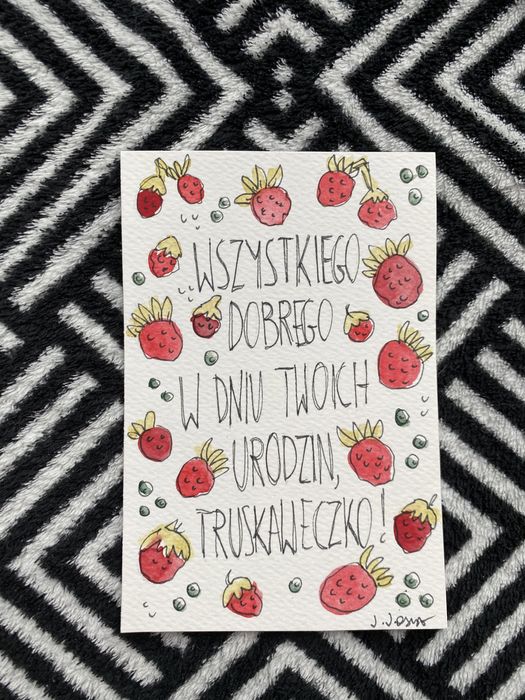 WSZYSTKIEGO
DOBREGO
W DNIU TWOICH
URODZIN,
TRUSKAWECZKO!